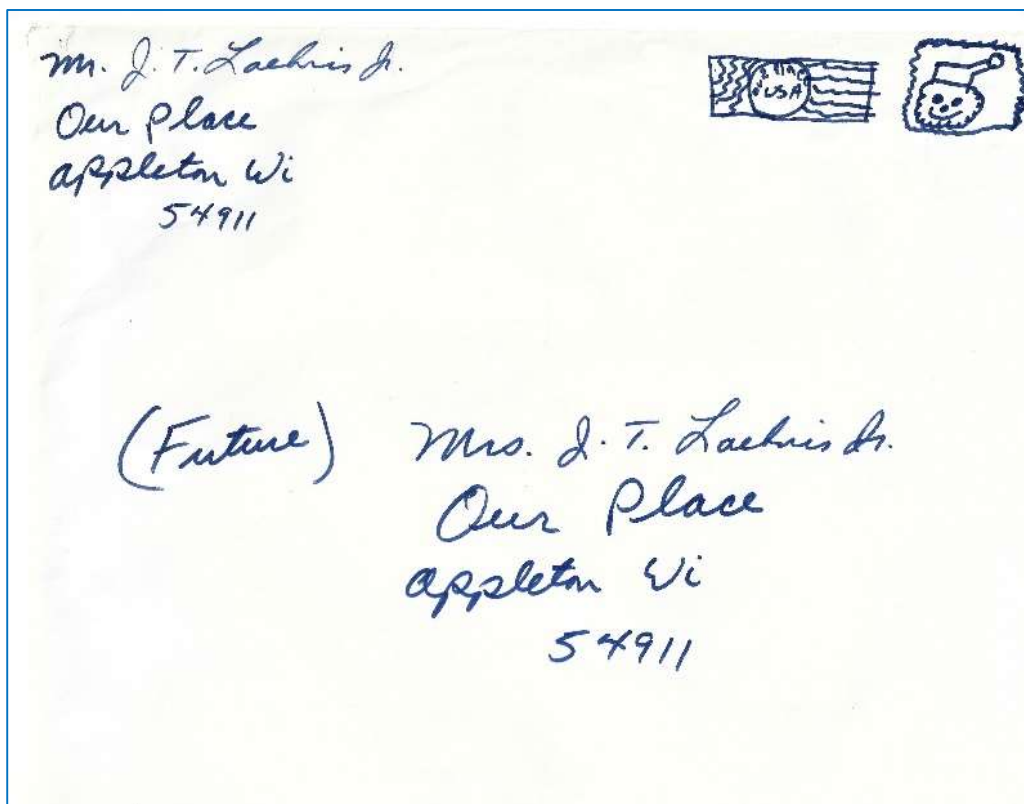 Mr. J. T. Laehris Jr.
Our Place
Appleton Wi
54911
USA
(Future) Mrs. J. T. Laehris Jr.
Our Place
Appleton Wi
54911